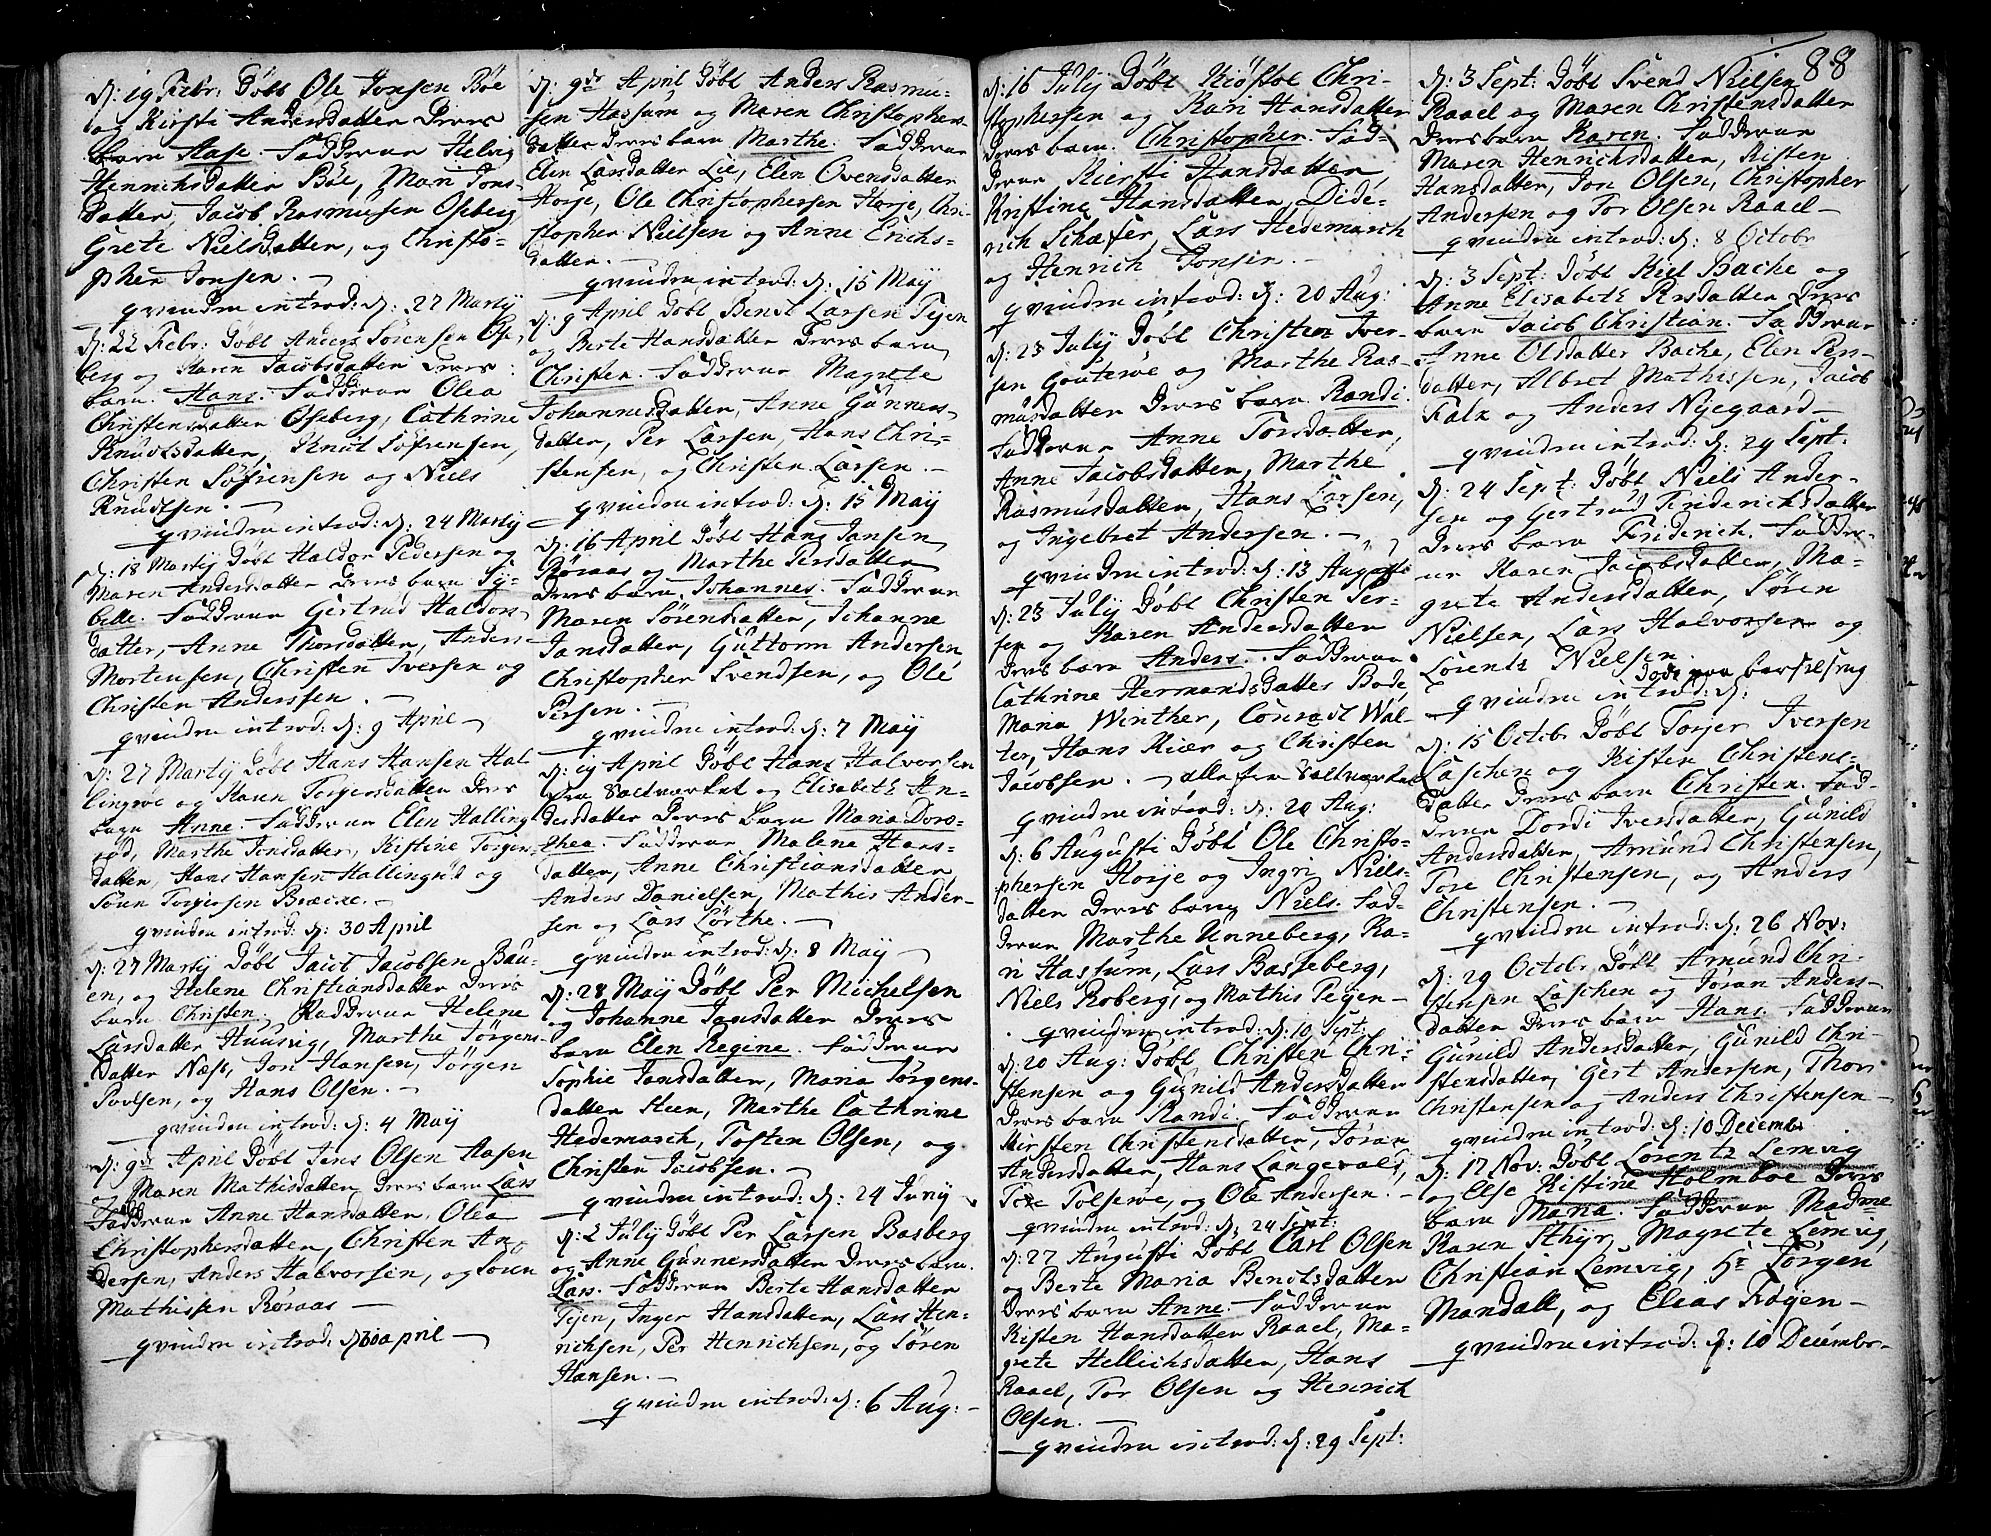 d: 19 Febr: Döbt Ole Jonsen Böe
og Kirsti Andersdatter Deres
barn Aase. Fadderne Helvig
Henrichsdatter Böe, Mari Jons-
datter, Jacob Rasmusen Oseberg
Grete Nielsdatter, og Christo-
pher Jonsen.
qvinden introd: d: 27 Martij
d: 22 Febr: Döbt Anders Sörensen Ose-
berg og Karen Jacobsdatter Deres
barn. Hans. Fadderne Olea
Christensdatter Oseberg, Cathrine
Knudsdatter, Knut Söfrensen,
Christen Söfrensen og Niels
Knudtsen.
qvinden introd: d: 24 Martij
d: 18 Martij Döbt Haldor Pedersen og
Maren Andersdatter Deres barn Sy-
bille. Fadderne Gertrud Haldors
datter, Anne Thorsdatter, Anders
Mortensen, Christen Iversen og
Christen Anderssen.
qvinden introd: d: 9 April
d: 27 Martij Döbt Hans Hansen Hal
lingröe og Karen Torgersdatter Deres
barn Anne. Fadderne Elen Halling
röd, Marthe Jonsdatter, Kistine Torgers
datter, Hans Hansen Hallingröd og
Sören Torgersen
qvinden introd: d: 30 April
d: 27 Martij Döbt Jacob Jacobsen Bau-
en, og Helene Christiansdatter Deres
barn Christen. Fadderne Helene
Larsdatter Huusvig, Marthe Jörgens-
datter Næss, Jon Hansen, Jörgen
Povelsen, og Hans Olsen.
qvinden introd: d: 4 Maij
d: 9de April Döbt Jens Olsen Aasen
og Maren Mathisdatter Deres barn Lars
Fadderne Anne Hansdatter, Olea
Christophersdatter, Christen An-
dersen, Anders Halvorsen, og Sören
Mathissen Röraas
qvinden introd: d: 30 april
d: 9de April Döbt Anders Rasmu-
sen Hassum og Maren Christophers
datter Deres barn Marthe. Fadderne
Elen Larsdatter Lie, Elen Ovensdatter
Horje, Ole Christophersen Horje, Chri-
stopher Nielsen og Anne Erichs-
datter.
qvinden introd: d: 15 Maij
d: 9 April Döbt Bendt Larsen Tejen
og Berte Hansdatter Deres barn
Christen. Fadderne Magrete
Johannesdatter, Anne Gunners-
datter, Per Larsen, Hans Chri-
stensen, og Christen Larsen.
qvinden introd: d: 15 Maij
d: 16 April Döbt Hans Jansen
Röraas og Marthe Persdatter
Deres barn. Johannes. Fadderne
Maren Sörensdatter, Johanne
Jansdatter, Guttorm Andersen
Christopher Svendsen, og Ole
Persen.
qvinden introd: d: 7 Maij
d: 19 April Döbt Hans Halvorsen
Ved Saltværket og Elisabeth An-
dersdatter Deres barn Maria Doro-
thea. Fadderne Malene Hans-
datter, Anne Christiansdatter,
Anders Danielsen, Mathis Ander-
sen og Lars Lörthe.
qvinden introd: d: 8 Maij
d: 28 Maij Döbt Per Michelsen
og Johanne Jansdatter Deres
barn Elen Regine. Fadderne
Sophie Jansdatter, Maria Jörgens-
datter Steen, Marthe Cathrine
Hedemarch, Tosten Olsen, og
Christen Jacobsen.
qvinden introd: d: 24 Junij
d: 2 Julij Döbt Per Larsen Basberg
og Anne Gunnersdatter Deres barn.
Lars. Fadderne Berte Hansdatter
Tejen, Inger Hansdatter, Lars Hen-
richsen, Per Henrichsen, og Sören
Hansen.
qvinden introd: d: 6 Aug:
88
d: 16 Julij Döbt Kiöstol Chri-
stophersen og Kari Hansdatter
Deres barn. Christopher. Fad-
derne Kiersti Hansdatter,
Kristine Hansdatter, Dide-
rich Schæfer, Lars Hedemarch
og Henrich Jonsen.
qvinden introd: d: 20 Aug:
d: 23 Julij Döbt Christen Iver-
sen Gouteröe og Marthe Ras-
musdatter Deres barn Randi.
Fadderne Anne Torsdatter,
Anne Jacobsdatter, Marthe
Rasmusdatter, Hans Larsen,
og Ingebret Andersen.
qvinden introd: d: 13 Augusti
d: 23 Julij Döbt Christen Per-
sen og Karen Andersdatter
Deres barn Anders. Fadderne
Cathrine Hermandsdatter Bode,
Maria Winther, Conradt Wal-
ter, Hans Kiær og Christen
Jacobsen. alle fra Saltværket
qvinden introd: d: 20 Aug:
d: 6 Augusti Döbt Ole Christo-
phersen Horje og Ingri Niels-
datter Deres barn Niels. Fad-
derne Marthe Unneberg, Ka-
ri Hassum, Lars Basseberg,
Niels Roberg, og Mathis Tegen
qvinden introd: d: 10 Sept:
d: 20 Aug: Döbt Christen Chri-
stensen og Gunild Andersdatter
Deres barn Randi. Fadderne
Kirsten Christensdatter, Jöran
Andersdatter, Hans Langevald,
Tore Tolseröe, og Ole Andersen.
qvinden introd: d: 24 Sept:
d: 27 Augusti Döbt Carl Olsen
og Berte Maria Bendtsdatter
Deres barn Anne. Fadderne
Kisten Hansdatter Raael, Ma-
grete Hellichsdatter, Hans
Raael, Tor Olsen og Henrich
Olsen.
qvinden introd: d: 29 Sept:
d: 3 Sept: Döbt Svend Nielsen
Raael og Maren Christensdatter
Deres barn Karen. Fadderne
Maren Henrichsdatter, Kisten
Hansdatter, Jon Olsen, Christopher
Andersen og Tor Olsen Raael
qvinden introd: d: 8 Octobr
d: 3 Sept: Döbt Kiel Bache og
Anne Elisabeth Persdatter Deres
barn Jacob Christian. Fadderne
Anne Olsdatter Bache, Elen Pers-
datter, Albret Mathissen, Jacob
Falk og Anders Nyegaard
qvinden introd: d: 29 Sept:
d: 24 Sept: Döbt Niels Ander-
sen og Gertrud Friderichsdatter
Deres barn Friderich. Fadder-
ne Karen Jacobsdatter, Ma-
grete Andersdatter, Sören
Nielsen, Lars Halvorsen og
Lorents Nielsen
döde paa barselseng
qvinden introd: d:
d: 15 Octobr Döbt Torjer Iversen
Laschen og Kisten Christens-
datter Deres barn Christen. Fad-
derne Dordi Iversdatter, Gunild
Andersdatter, Amund Christensen,
Tore Christensen, og Anders
Christensen.
qvinden introd: d: 26 Nov:
d: 29 Octobr Döbt Amund Chri-
stensen Laschen og Jöran Anders-
datter Deres barn Hans. Fadderne
Gunild Andersdatter, Gunild Chri-
stensdatter, Gert Andersen, Thor
Christensen og Anders Christensen
qvinden introd: d: 10 Decembr
d: 17 Nov: Döbt Lorentz Lemvig
og Else Kistine Holmboe Deres
barn Maria. Fadderne Madme
Karen Sthyr, Magrete Lemvig,
Christian Lemvig, Hr Jörgen
Mandall, og Elias Röyen
qvinden introd: d: 10 Decembr